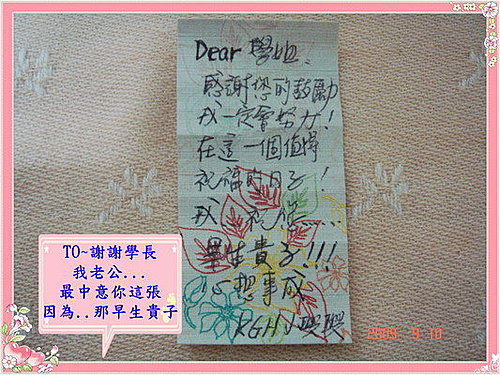 Dear 學姐:
感謝您的鼓勵
我一定會努力!
在這一個值得
祝福的日子!
我 祝您....
早生貴子!!!
心想事成
TO~謝謝學長
我老公...
最中意你這張
因為..那早生貴子
2009 9 10